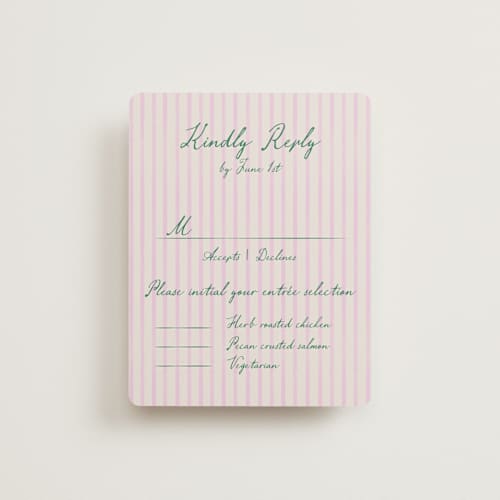 Kindly Reply
by June 1st
M
Accepts | Declines
Please initial your entrée selection
Herb roasted chicken
Pecan crusted salmon
Vegetarian